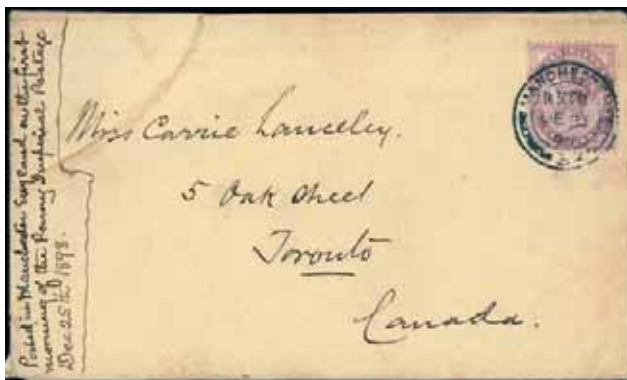 Posted in Manchester England on the first
morning of the Penny Imperial Postage
Dec 25th 1898.
Miss Carrie Lanceley.
5 Oak Street
Toronto
Canada.
MANCHESTER